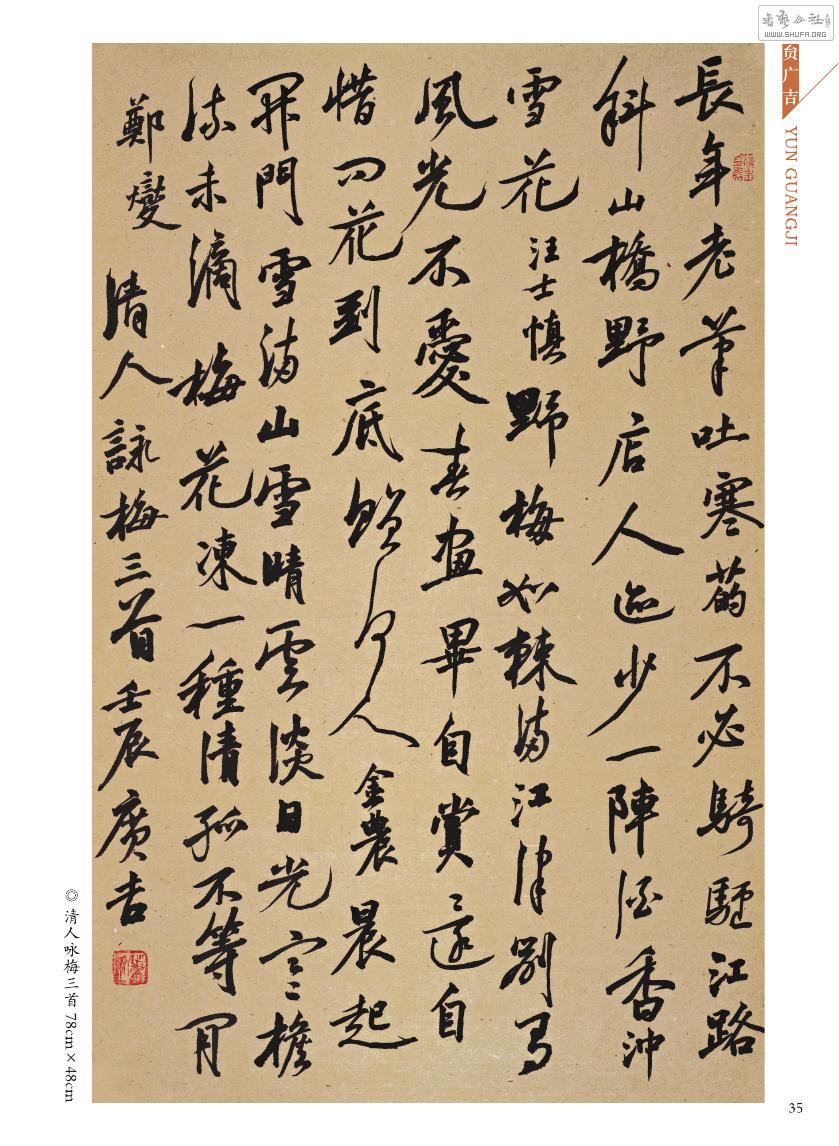 書藝公社
WWW.SHUFA.ORG
贠广吉
YUN GUANGJI
長年老筆吐寒葩不必騎驢江路
斜山橋野店人迹少一陣酒香沖
雪花汪士慎野梅如棘滿江津別有
風光不愛春畫畢自賞還自
惜問花到底贈何人金農晨起
開門雪滿山雪晴雲淡日光寒檐
流未滴梅花凍一種清孤不等閒
鄭燮清人詠梅三首壬辰廣吉
◎清人咏梅三首 78cm×48cm
35